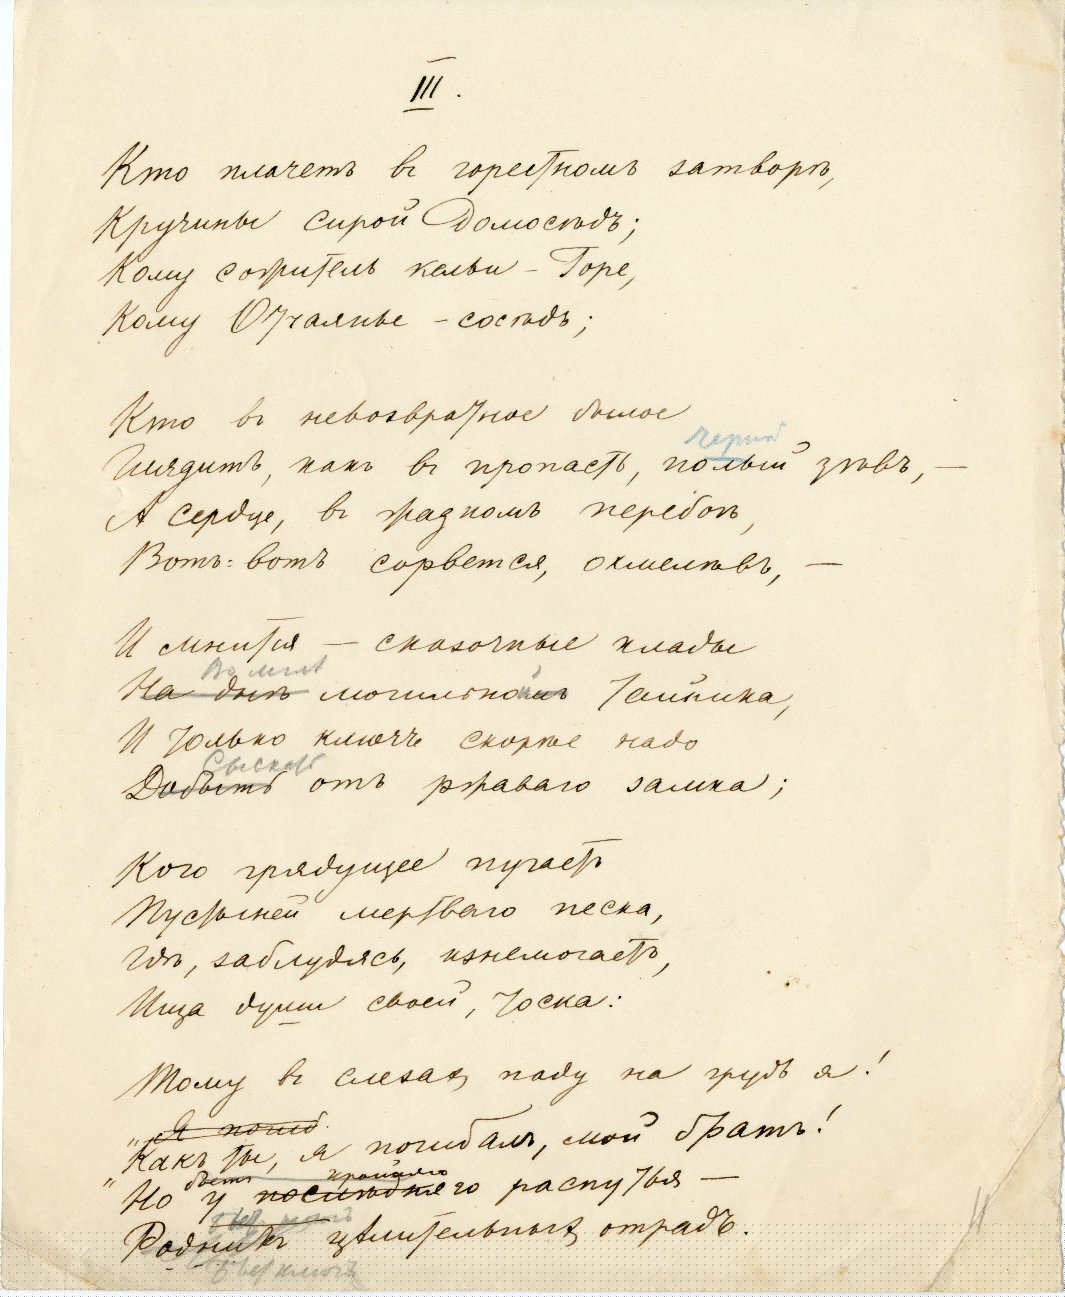 III.
Кто плачетъ въ горестномъ затворѣ,
Кручины сирой Домосѣдъ;
Кому сожитель кельи – Горе,
Кому Отчаянье – сосѣдъ;
Кто въ невозвратное былое
черный
Глядитъ, какъ въ пропасть, полый зѣвъ, —
А сердце, въ жадномъ перебоѣ,
Вотъ-вотъ сорвется, охмелѣвъ, —
И мнится — сказочные клады
Во мглѣ
На днѣ могильномъ тайника,
И только ключъ скорѣе надо
Сыскать
Добыть отъ ржаваго замка;
Кого грядущее пугаетъ
Пустыней мертваго песка,
Гдѣ, заблудясь, изнемогаетъ,
Ища души своей, тоска:
Тому въ слезахъ паду на грудь я!
„Я погиб
„Какъ ты, я погибалъ, мой братъ!
бьетъ крайняго
„Но у послѣдняго распутья —
Бьетъ ключъ
Родникъ цѣлительныхъ отрадъ.
Бьет ключъ